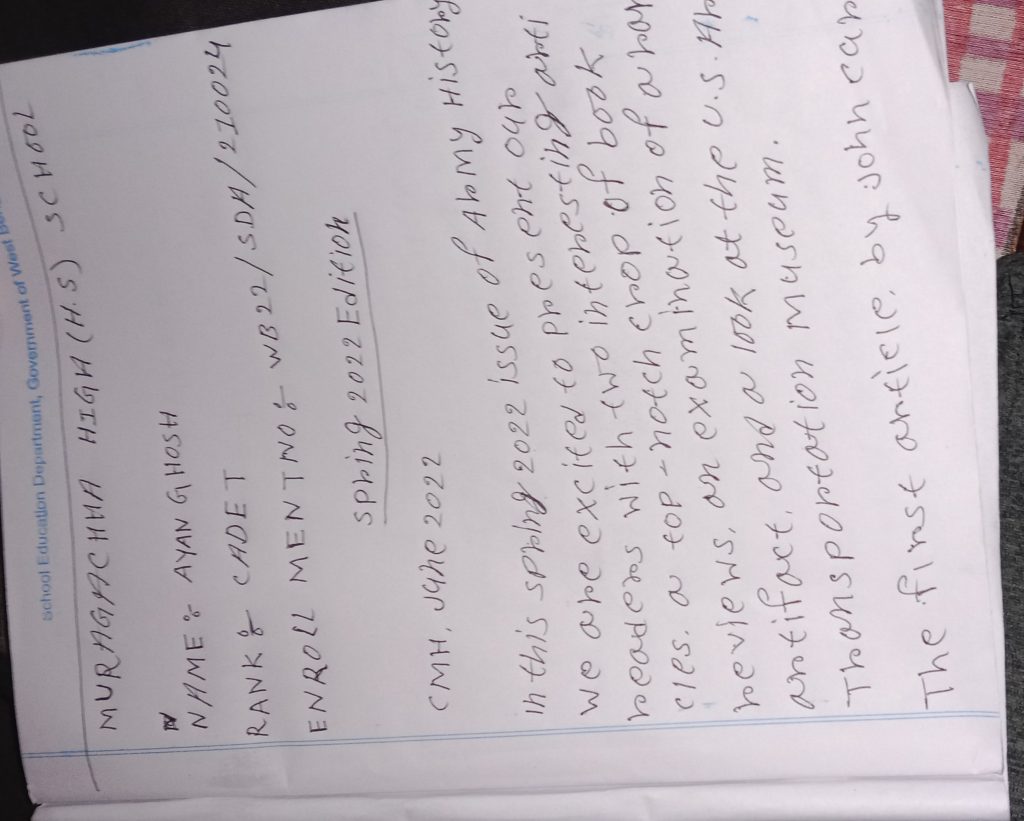 School Education Department, Government of West Ben
MURAGACHHA HIGH (H.S) SCHOOL
NAME: AYAN GHOSH
RANK: CADET
ENROLL MENT NO: WB22/SDA/210024
Spring 2022 Edition
CMH, June 2022
In this spring 2022 issue of Army History
we are excited to present our
readers with two interesting arti
cles. a top-notch crop of book
reviews, an examination of a rar
artifact, and a look at the U.S. Ar
Transportation Museum.
The first article, by John Car